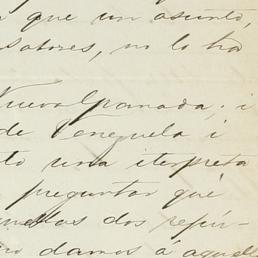 que un asunto,
no lo ha
Nueva Granada; i
de Venezuela i
una iterpreta
preguntar qué
dos repú-
damos á aquell